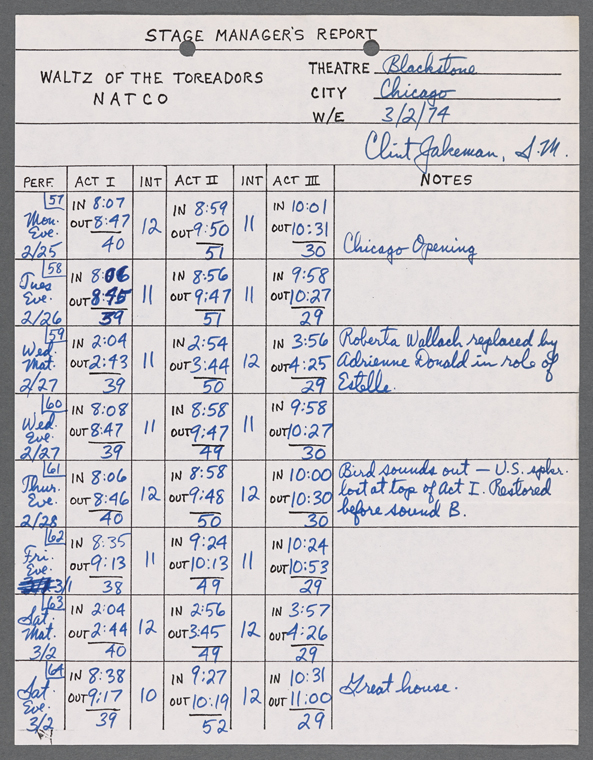 STAGE MANAGER'S REPORT
WALTZ OF THE TOREADORS
NATCO
THEATRE Blackstone
CITY Chicago
W/E 3/2/74
Clint Jakeman, S.M.
PERF. ACT I INT ACT II INT ACT III NOTES
57 Mon. Eve. 2/25 IN 8:07 OUT 8:47 40 12 IN 8:59 OUT 9:50 51 11 IN 10:01 OUT 10:31 30 Chicago Opening
58 Tues Eve. 2/26 IN 8:06 OUT 8:45 39 11 IN 8:56 OUT 9:47 51 11 IN 9:58 OUT 10:27 29
59 Wed. Mat. 2/27 IN 2:04 OUT 2:43 39 11 IN 2:54 OUT 3:44 50 12 IN 3:56 OUT 4:25 29
Roberta Wallach replaced by
Adrienne Donald in role of
Estelle.
60 Wed. Eve. 2/27 IN 8:08 OUT 8:47 39 11 IN 8:58 OUT 9:47 49 11 IN 9:58 OUT 10:27 30
61 Thur. Eve. 2/28 IN 8:06 OUT 8:46 40 12 IN 8:58 OUT 9:48 50 12 IN 10:00 OUT 10:30 30
Bird sounds out — U.S. spkr.
lost at top of Act I. Restored
before sound B.
62 Fri. Eve. 3/1 IN 8:35 OUT 9:13 38 11 IN 9:24 OUT 10:13 49 11 IN 10:24 OUT 10:53 29
63 Sat. Mat. 3/2 IN 2:04 OUT 2:44 40 12 IN 2:56 OUT 3:45 49 12 IN 3:57 OUT 4:26 29
64 Sat Eve. 3/2 IN 8:38 OUT 9:17 39 10 IN 9:27 OUT 10:19 52 12 IN 10:31 OUT 11:00 29 Great house.